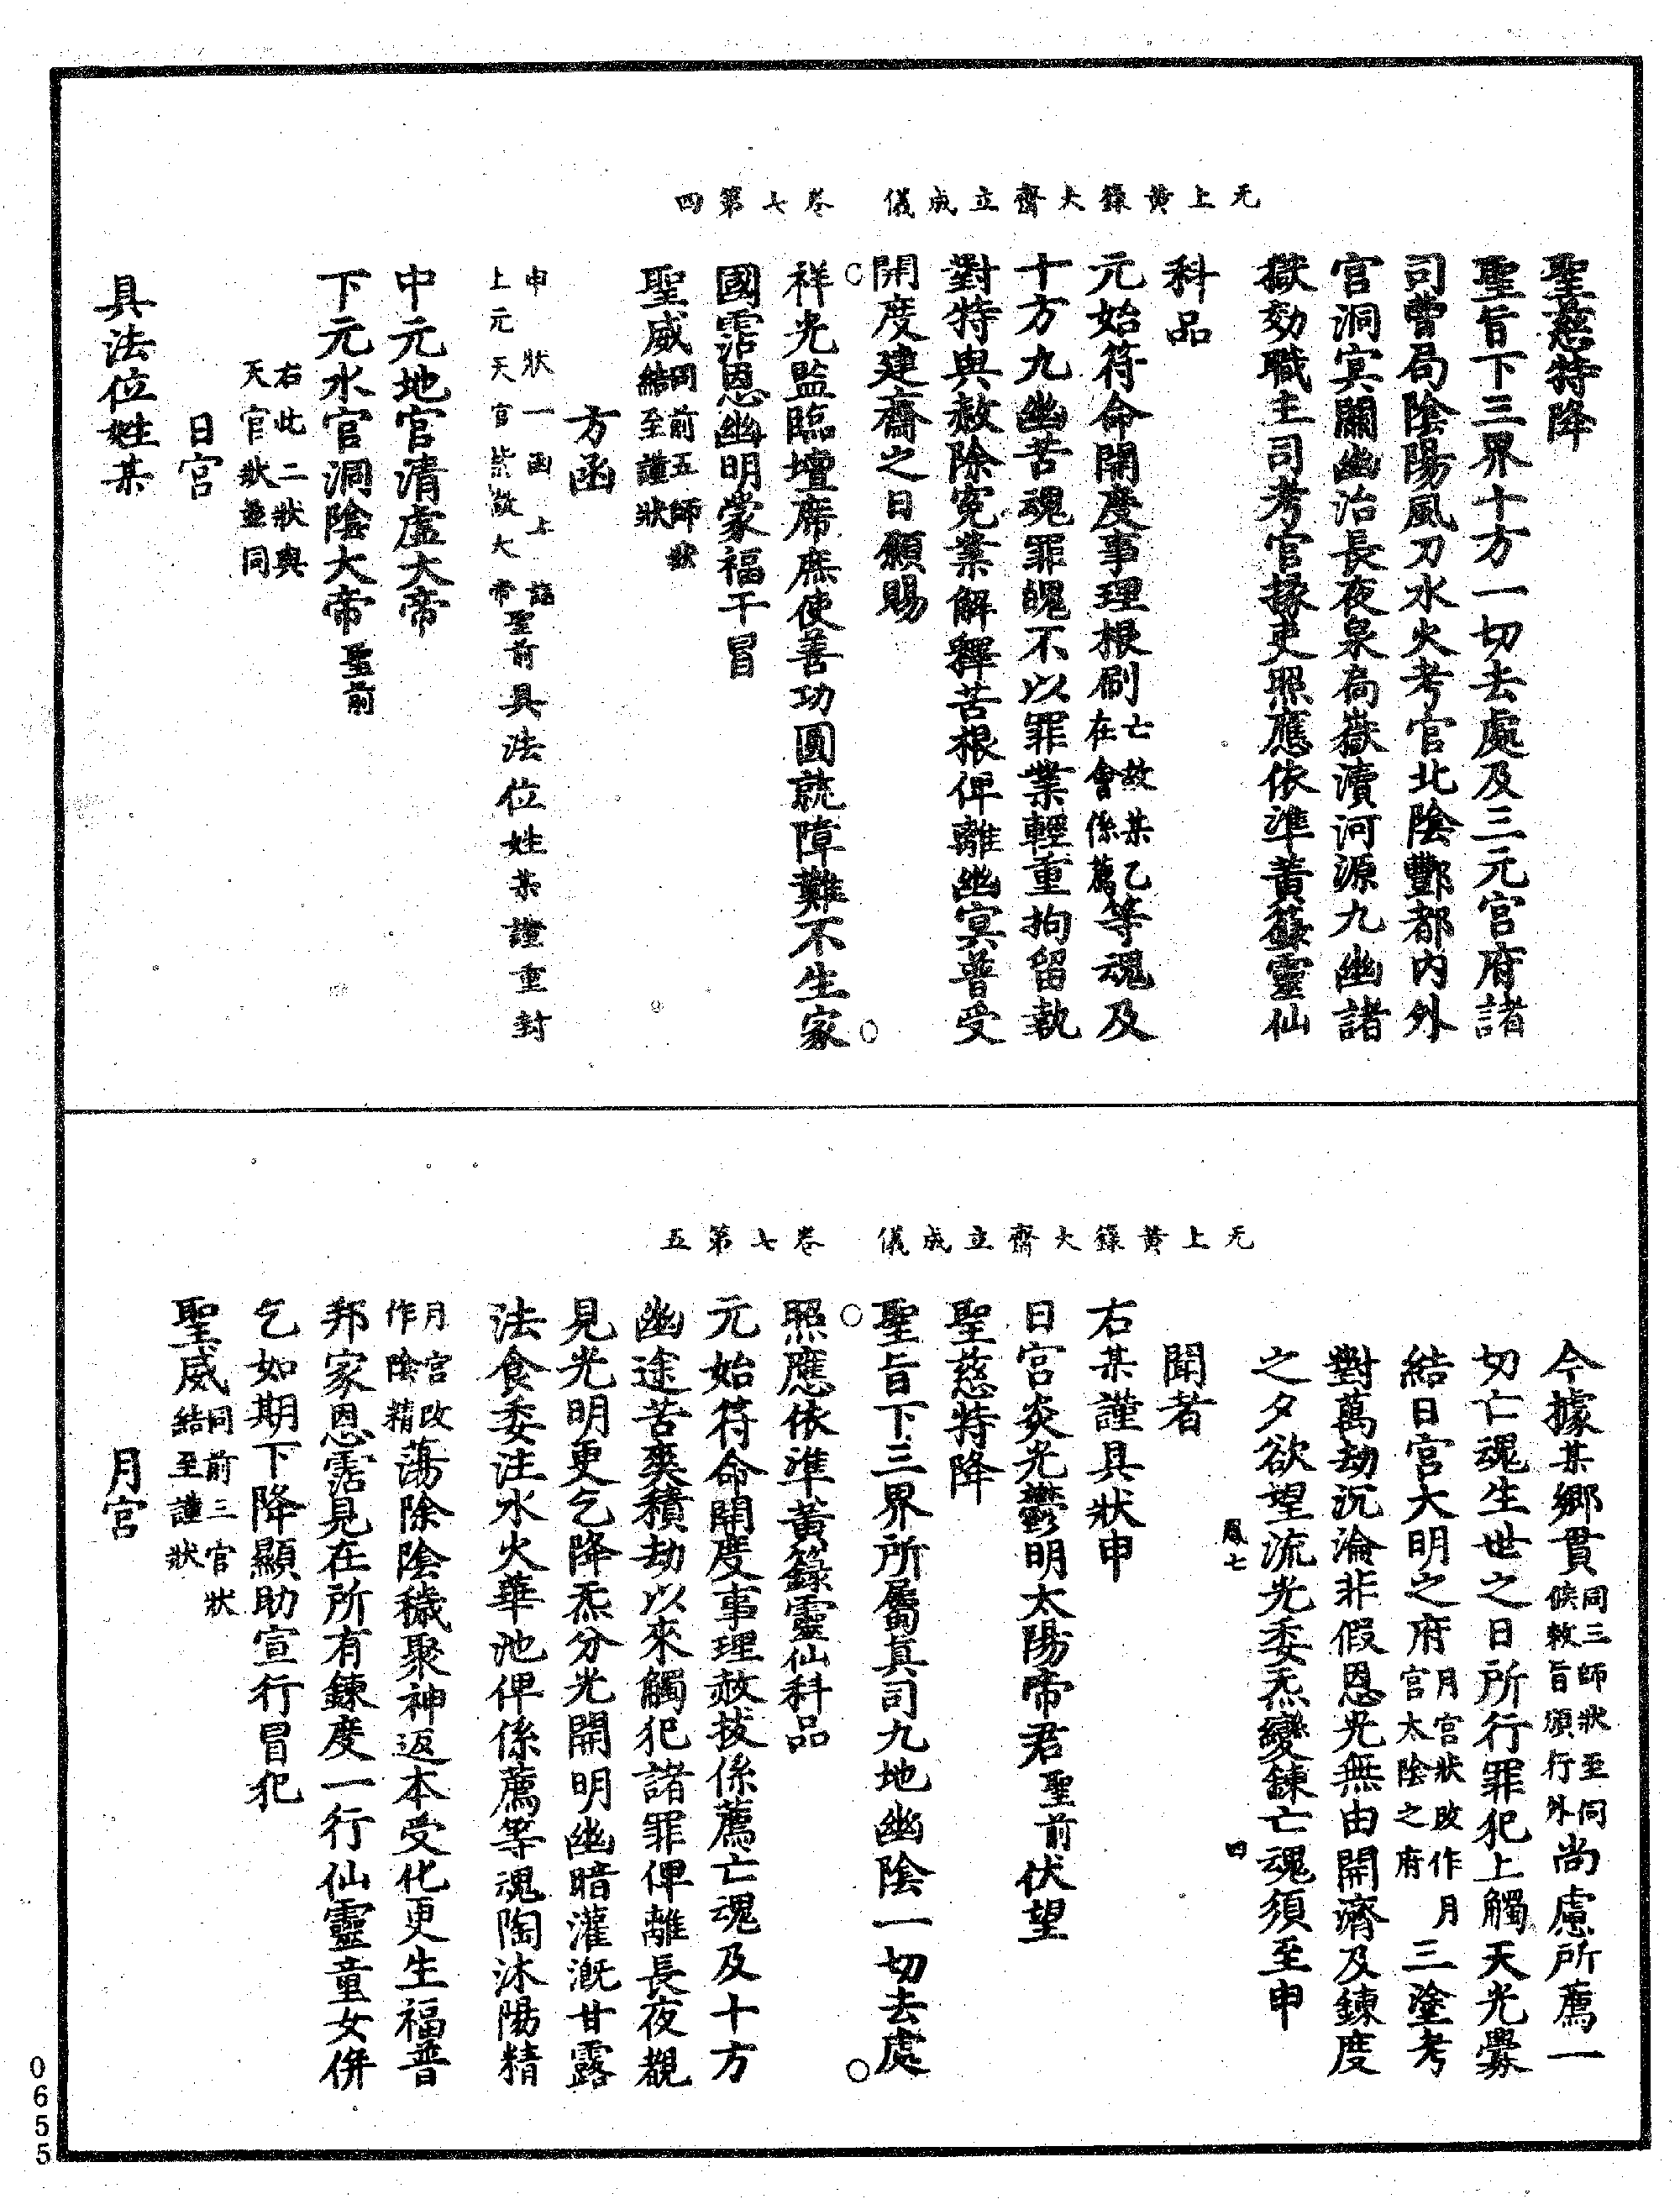 无上黃籙大齋立成儀　卷七第四
聖慈特降
聖旨下三界十方一切去處及三元官府諸
司曹局陰陽風刀水火考官北陰酆都内外
宮洞冥關幽治長夜泉扃嶽瀆河源九幽諸
獄効職主司考官掾吏照應依準黃籙靈仙
科品
元始符命開度事理根刷亡故某乙在會係薦等魂及
十方九幽苦魂罪魄不以罪業輕重拘留執
對特與赦除冤業解釋苦根俾離幽冥普受
開度建齋之日願賜
祥光監臨壇席庶使善功圓就障難不生家
國霑恩幽明蒙福干冒
聖威同前五師狀結至謹狀
方函
申狀一函上詣
上元天官紫微大帝聖前具法位姓某謹重封
中元地官清虛大帝
下元水官洞陰大帝聖前
右此二狀與
天官狀並同
日宮
具法位姓某
无上黃籙大齋立成儀　卷七第五
今據某鄉貫同三師狀至伺候敕旨頒行外尚慮所薦一
切亡魂生世之日所行罪犯上觸天光釁
結日宮大明之府月宮狀改作月宮太陰之府三塗考
對萬劫沉淪非假恩光無由開濟及鍊度
之夕欲望流光委炁變鍊亡魂須至申
鳳七　四
聞者
右某謹具狀申
日宮炎光鬱明太陽帝君聖前伏望
聖慈特降
聖旨下三界所屬真司九地幽陰一切去處
照應依準黃籙靈仙科品
元始符命開度事理赦拔係薦亡魂及十方
幽途苦爽積劫以來觸犯諸罪俾離長夜覩
見光明更乞降炁分光開明幽暗灌溉甘露
法食委注水火華池俾係薦等魂陶沐陽精
月宮改作陰精蕩除陰穢聚神返本受化更生福普
邦家恩霑見在所有鍊度一行仙靈童女併
乞如期下降顯助宣行冒犯
聖威同前三官狀結至謹狀
月宮
0655